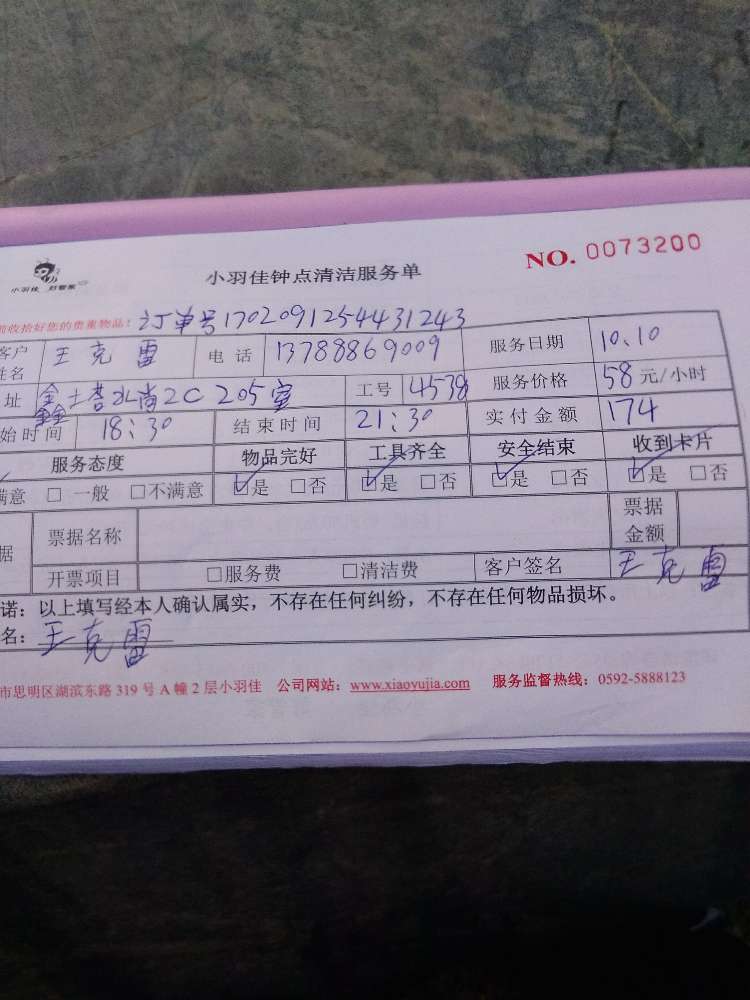 小羽佳 好管家
小羽佳钟点清洁服务单
NO. 0073200
收拾好您的贵重物品! 订单号1702091254431243
客户姓名 王克雷 电话 13788869009 服务日期 10.10
址 2C 205室 工号 4538 服务价格 58 元/小时
始时间 18:30 结束时间 21:30 实付金额 174
服务态度 物品完好 工具齐全 安全结束 收到卡片
满意 □ 一般 □不满意 ☑是 □否 ☑是 □否 ☑是 □否 ☑是 □否
据 票据名称 票据金额
开票项目 □服务费 □清洁费 客户签名 王克雷
诺:以上填写经本人确认属实,不存在任何纠纷,不存在任何物品损坏。
名:王克雷
市思明区湖滨东路 319 号 A 幢 2 层小羽佳 公司网站:www.xiaoyujia.com 服务监督热线:0592-5888123